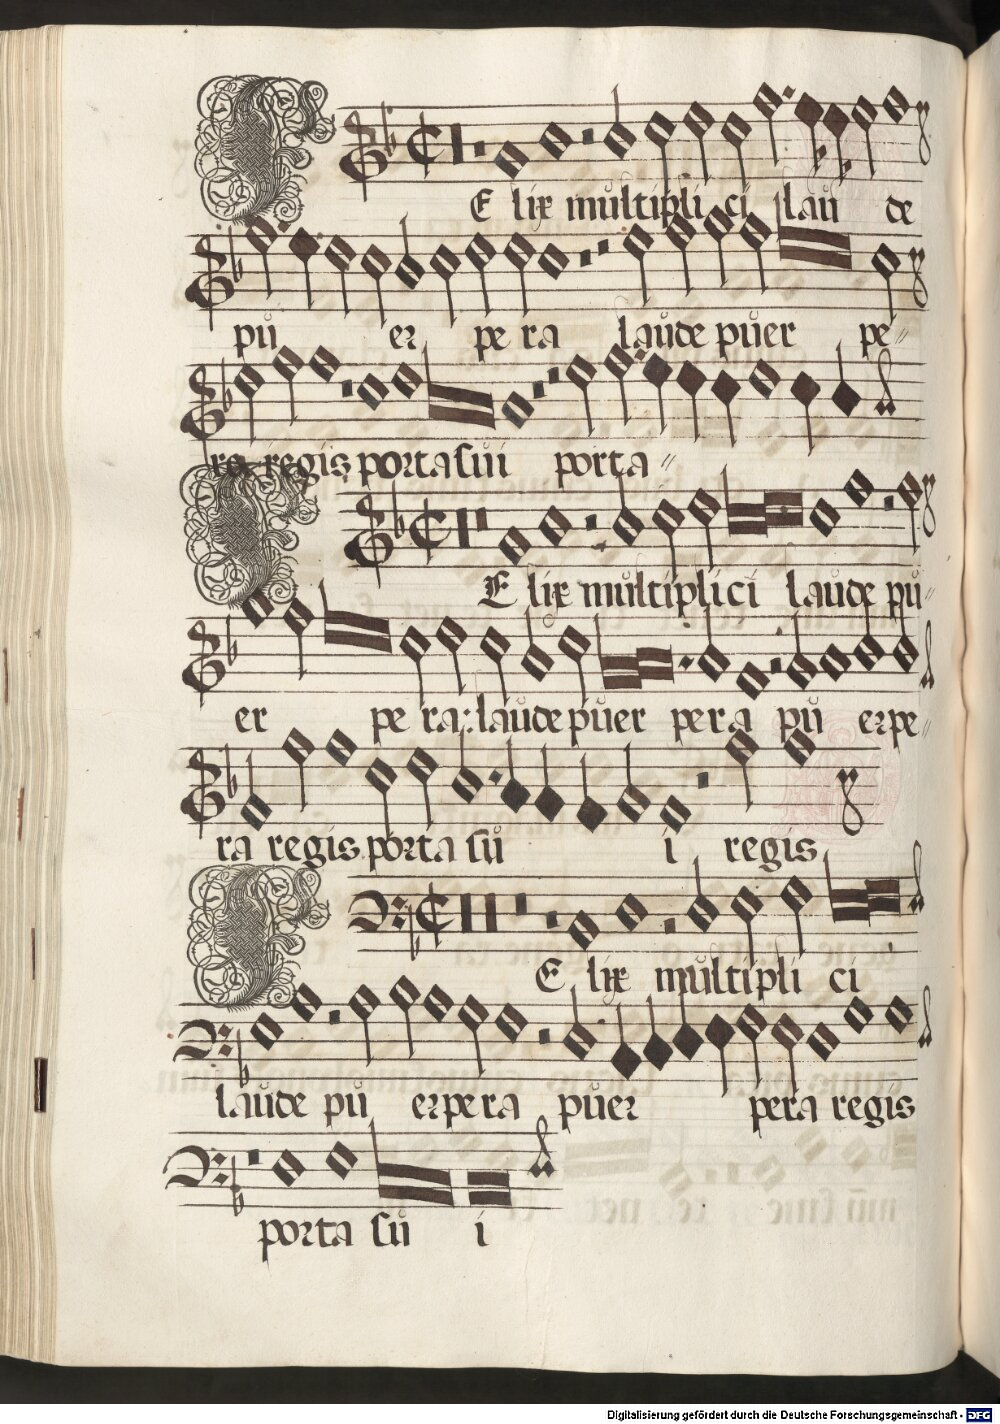 F E lix multipli ci lau de
pu er pe ra laude puer pe
ra regis porta sui porta
F E lix multiplici laude pu
er pe ra: laude puer pera pu erpe
ra regis porta su i regis
F E lix multipli ci
laude pu erpera puer pera regis
porta su i
Digitalisierung gefördert durch die Deutsche Forschungsgemeinschaft - DFG